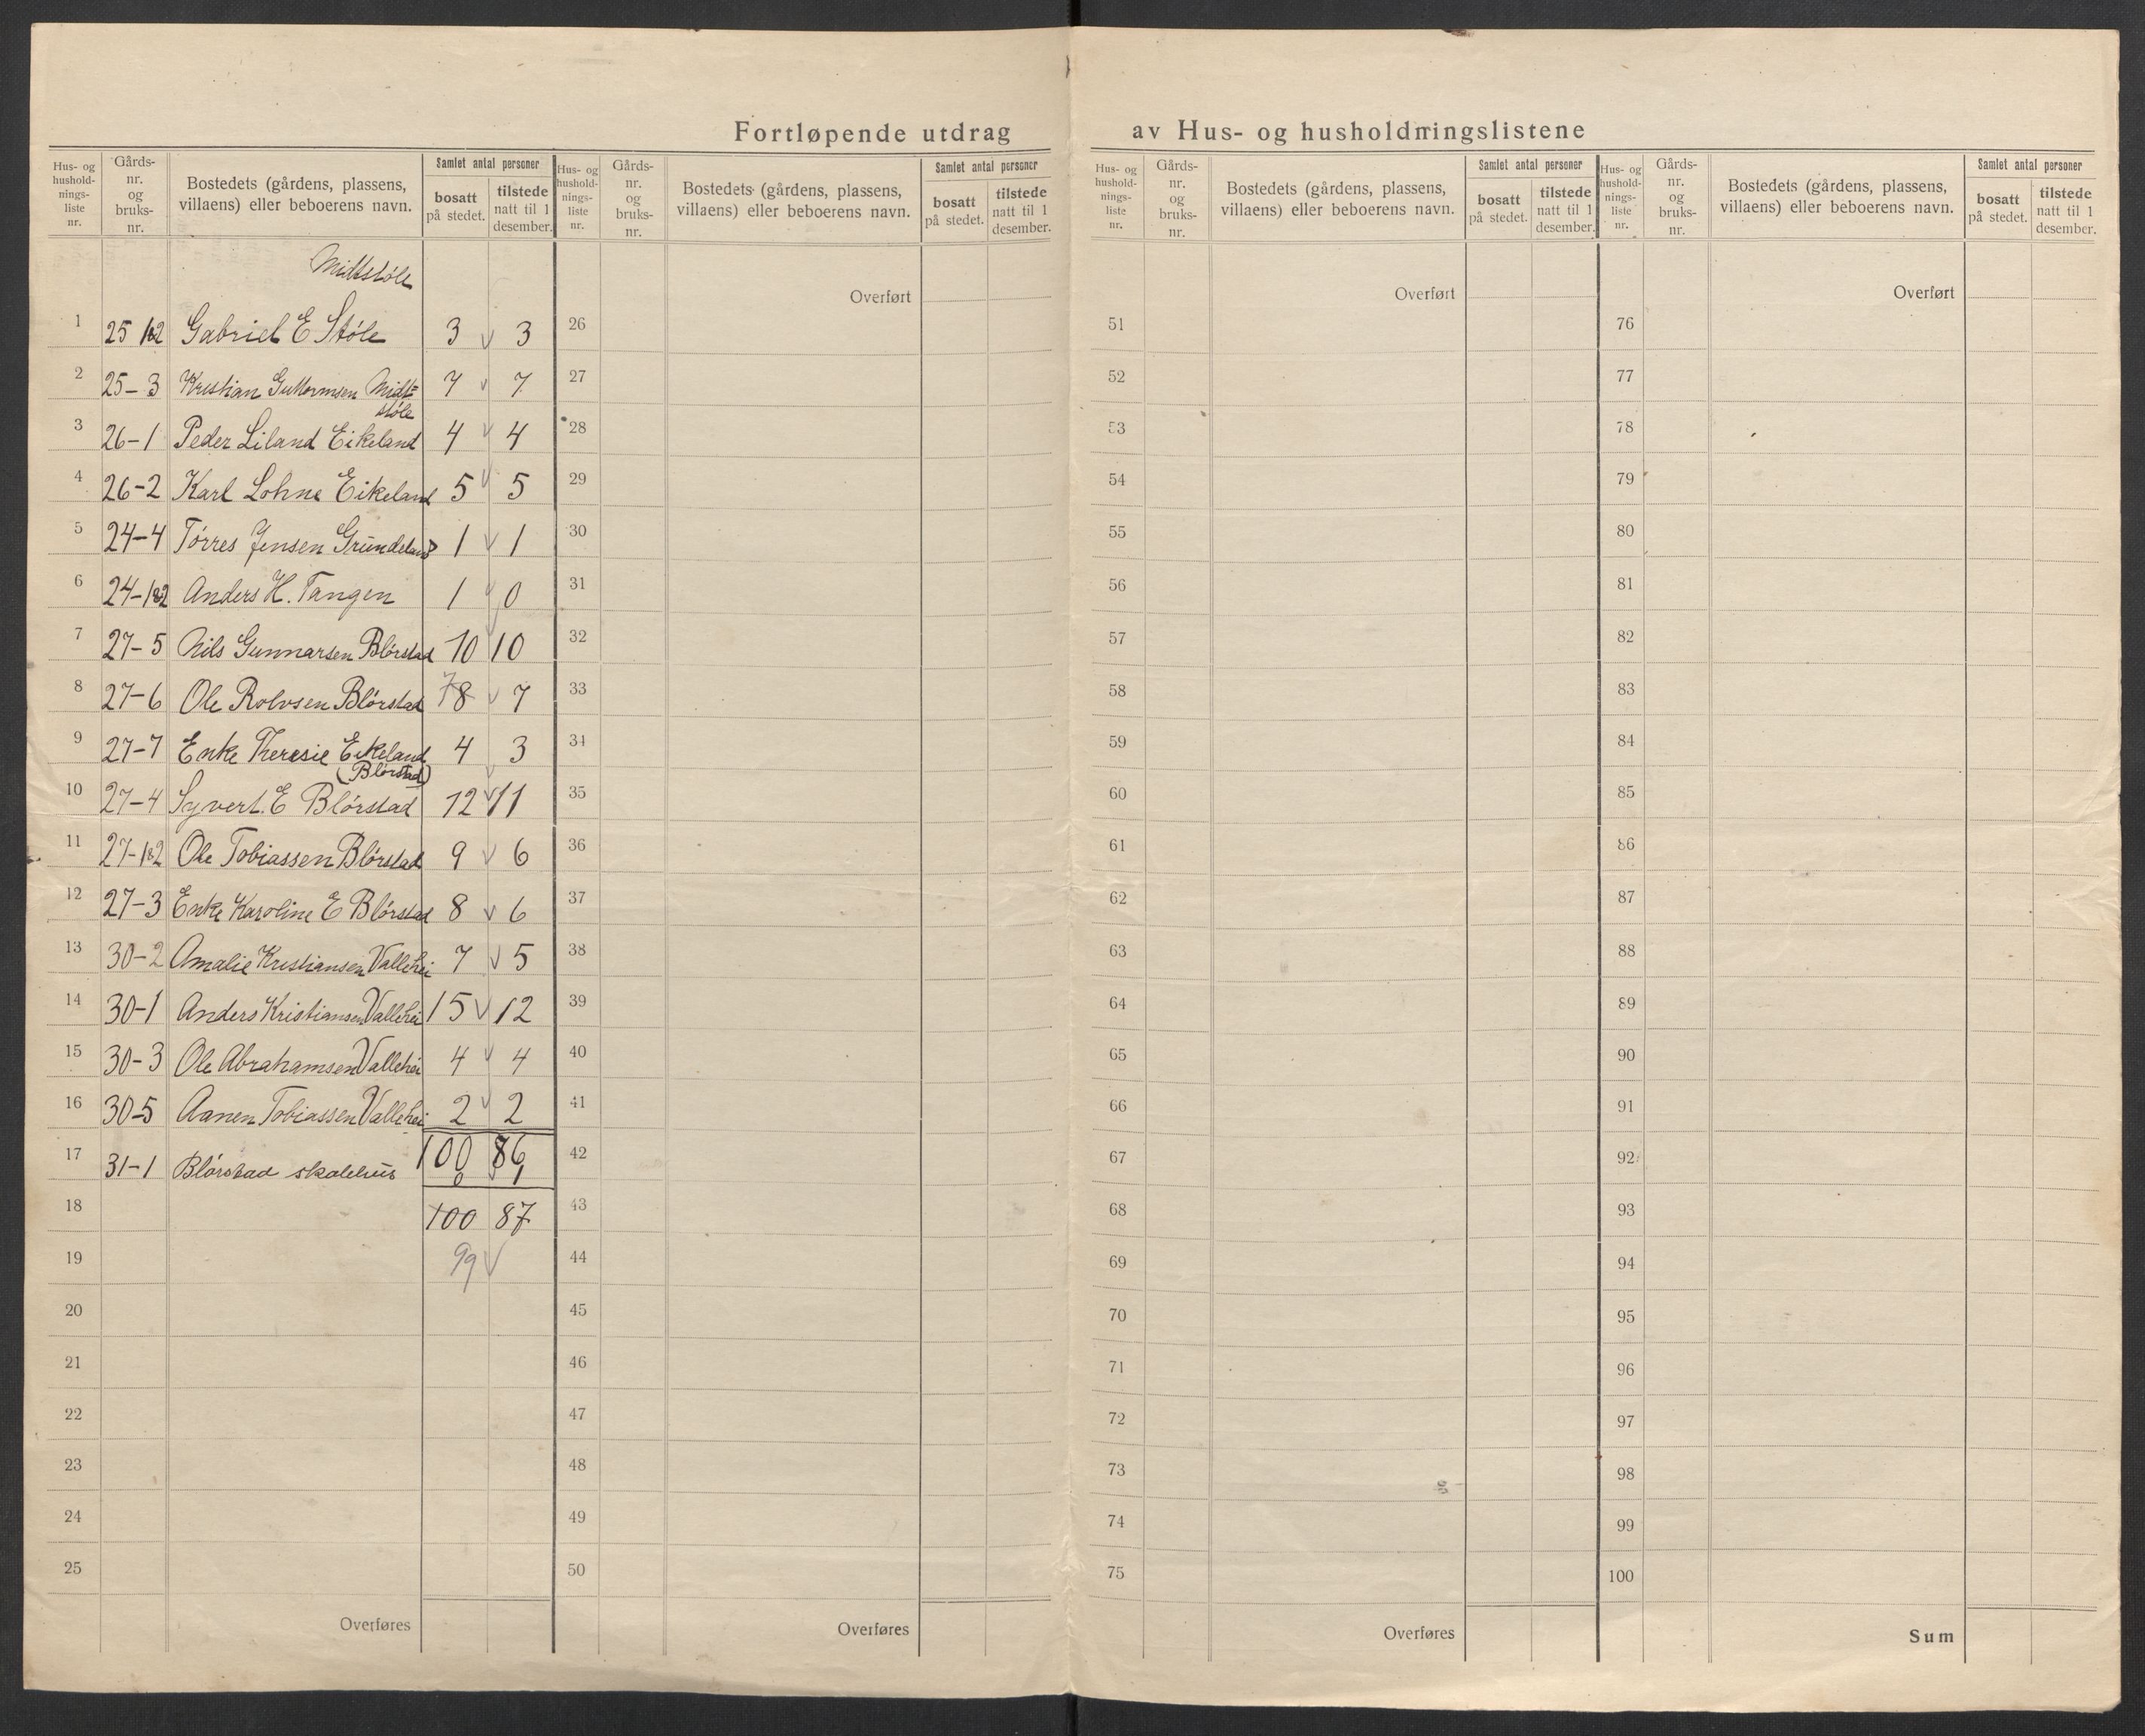 Fortløpende utdrag av Hus- og husholdningslistene
Hus- og husholdnings-liste nr. Gårds-nr. og bruks-nr. Bostedets (gårdens, plassens, villaens) eller beboerens navn. Samlet antal personer bosatt på stedet. tilstede natt til 1 desember.
Hus- og husholdnings-liste nr. Gårds-nr. og bruks-nr. Bostedets (gårdens, plassens, villaens) eller beboerens navn. Samlet antal personer bosatt på stedet. tilstede natt til 1 desember.
Hus- og husholdnings-liste nr. Gårds-nr. og bruks-nr. Bostedets (gårdens, plassens, villaens) eller beboerens navn. Samlet antal personer bosatt på stedet. tilstede natt til 1 desember.
Hus- og husholdnings-liste nr. Gårds-nr. og bruks-nr. Bostedets (gårdens, plassens, villaens) eller beboerens navn. Samlet antal personer bosatt på stedet. tilstede natt til 1 desember.
Midtstøle
1 25 1&2 Gabriel E Støle 3 v 3
2 25-3 Kristian Guttormsen Midt=
støle 7 v 7
3 26-1 Peder Liland Eikeland 4 v 4
4 26-2 Karl Lohne Eikeland 5 v 5
5 24-4 Tørres Jensen Grundeland 1 v 1
6 24-1&2 Anders H. Tangen 1 v 0
7 27-5 Nils Gunnarsen Blørstad 10 10
8 27-6 Ole Rolvsen Blørstad 7 8 v 7
9 27-7 Enke Theresie Eikeland 4 3
(Blørstad)
10 27-4 Syvert. E Blørstad 12 v 11
11 27-1&2 Ole Tobiassen Blørstad 9 v 6
12 27-3 Enke Karoline E Blørstad 8 v 6
13 30-2 Amalie Kristiansen Vallehei 7 v 5
14 30-1 Anders Kristiansen Vallehei 15 v 12
15 30-3 Ole Abrahamsen Vallehei 4 v 4
16 30-5 Aanen Tobiassen Vallehei 2 v 2
100 86
17 31-1 Blørstad skolehus 0 v 1
18 100 87
19 99 v
20
21
22
23
24
25
Overføres
Overført
26
27
28
29
30
31
32
33
34
35
36
37
38
39
40
41
42
43
44
45
46
47
48
49
50
Overføres
Overført
51
52
53
54
55
56
57
58
59
60
61
62
63
64
65
66
67
68
69
70
71
72
73
74
75
Overføres
Overført
76
77
78
79
80
81
82
83
84
85
86
87
88
89
90
91
92
93
94
95
96
97
98
99
100
Sum